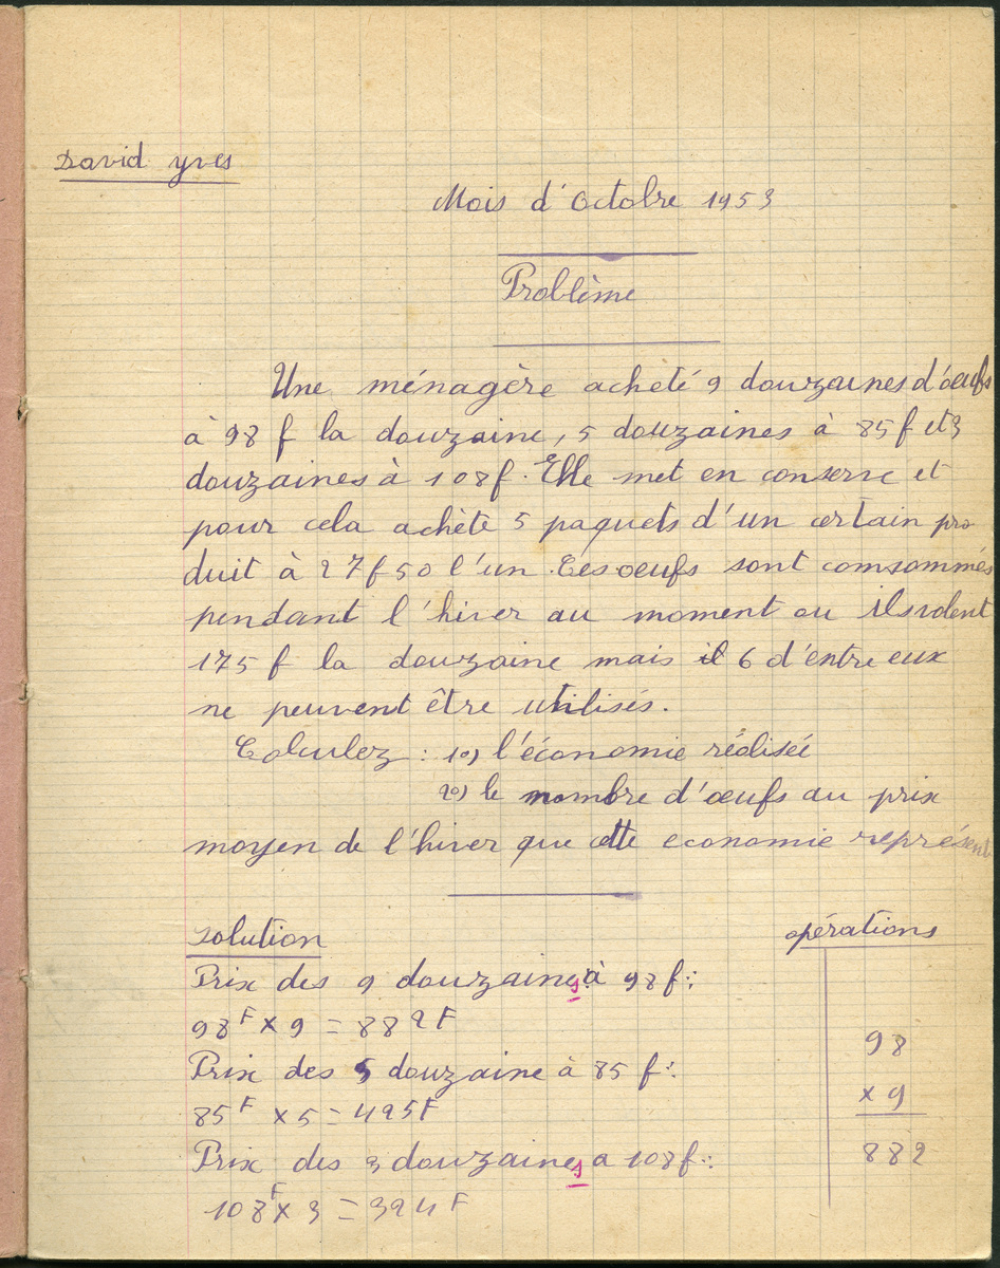 David yves
Mois d'Octobre 1953
Problème
Une ménagère acheté 9 douzaines d'œufs
à 98 f la douzaine, 5 douzaines à 85 f et 3
douzaines à 108 f. Elle met en conserve et
pour cela achète 5 paquets d'un certain pro
duit à 27 f 50 l'un. Ces œufs sont comsommés
pendant l'hiver au moment ou ils valent
175 f la douzaine mais il 6 d'entre eux
ne peuvent être utilisés.
Calculez : 1°) l'économie réalisée
2°) le nombre d'œufs au prix
moyen de l'hiver que cette economie représent
solution
opérations
Prix des 9 douzaines à 98 f :
98F x 9 = 882F
Prix des 5 douzaine à 85 f :
85F x 5 = 425F
Prix des 3 douzaines a 108 f :
108F x 3 = 324F
98
x 9
882